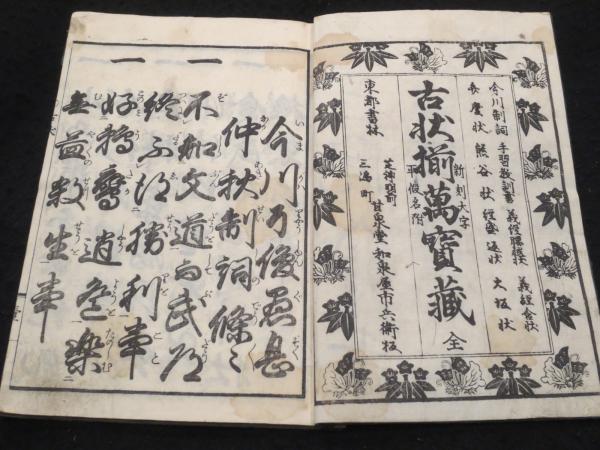 今川制詞 手習教訓書 義経腰越状 義経含状
弁慶状 熊谷状 経盛返状 大坂状
古状揃萬寳藏 全
新刻大字
平假名附
東都書林
芝神明前
三嶋町
甘泉堂 和泉屋市兵衛板
今川了俊愚息
仲秋制詞條々
一 不知文道而武道
終不得勝利事
一 好鵜鷹逍遥樂
無益殺生事